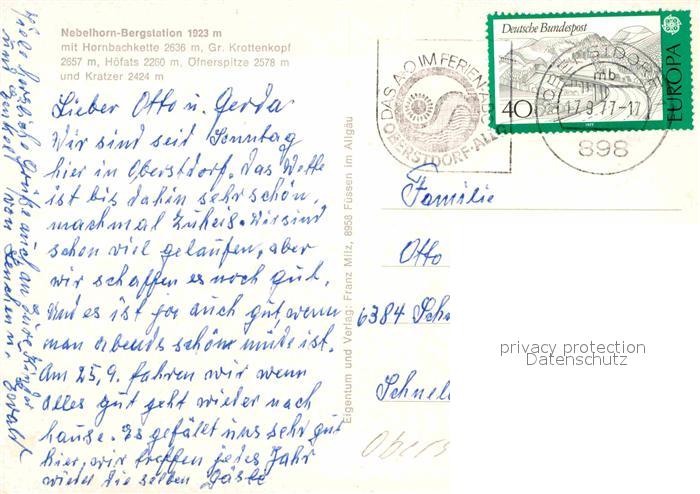 Nebelhorn-Bergstation 1923 m
mit Hornbachkette 2636 m, Gr. Krottenkopf
2657 m, Höfats 2260 m, Öfnerspitze 2578 m
und Kratzer 2424 m
Lieber Otto u. Gerda
Wir sind seit Sonntag
hier in Oberstdorf. Das Wette
ist bis dahin sehr schön,
machmal zuheis. Wir sind
schon viel gelaufen, aber
wir schaffen es noch gut.
Und es ist ja auch gut wenn
man abends schön müde ist.
Am 25.9. fahren wir wenn
alles gut geht wieder nach
hause. Es gefällt uns sehr gut
hier, wir treffen jedes Jahr
wieder die selben Gäste
Viele herzliche Grüße auch an Eure Kinder
und Enkel von Lenchen u. Ewald
Eigentum und Verlag: Franz Milz, 8958 Füssen im Allgäu
DAS A-O IM FERIEN
OBERSTDORF-ALLG
Deutsche Bundespost
40
EUROPA
OBERSTDORF
mb
17.9.77-17
898
Familie
Otto
6384 Sch
Schnel
privacy protection
Datenschutz
Obers